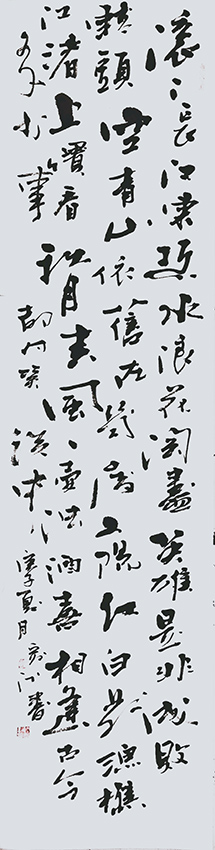 滚〻長江東逝水浪花淘盡英雄是非成敗
轉頭空青山依舊在幾度夕陽紅白髮漁樵
江渚上慣看秋月春風一壺濁酒喜相逢古今
多少事都付笑談中 庚子夏月 書